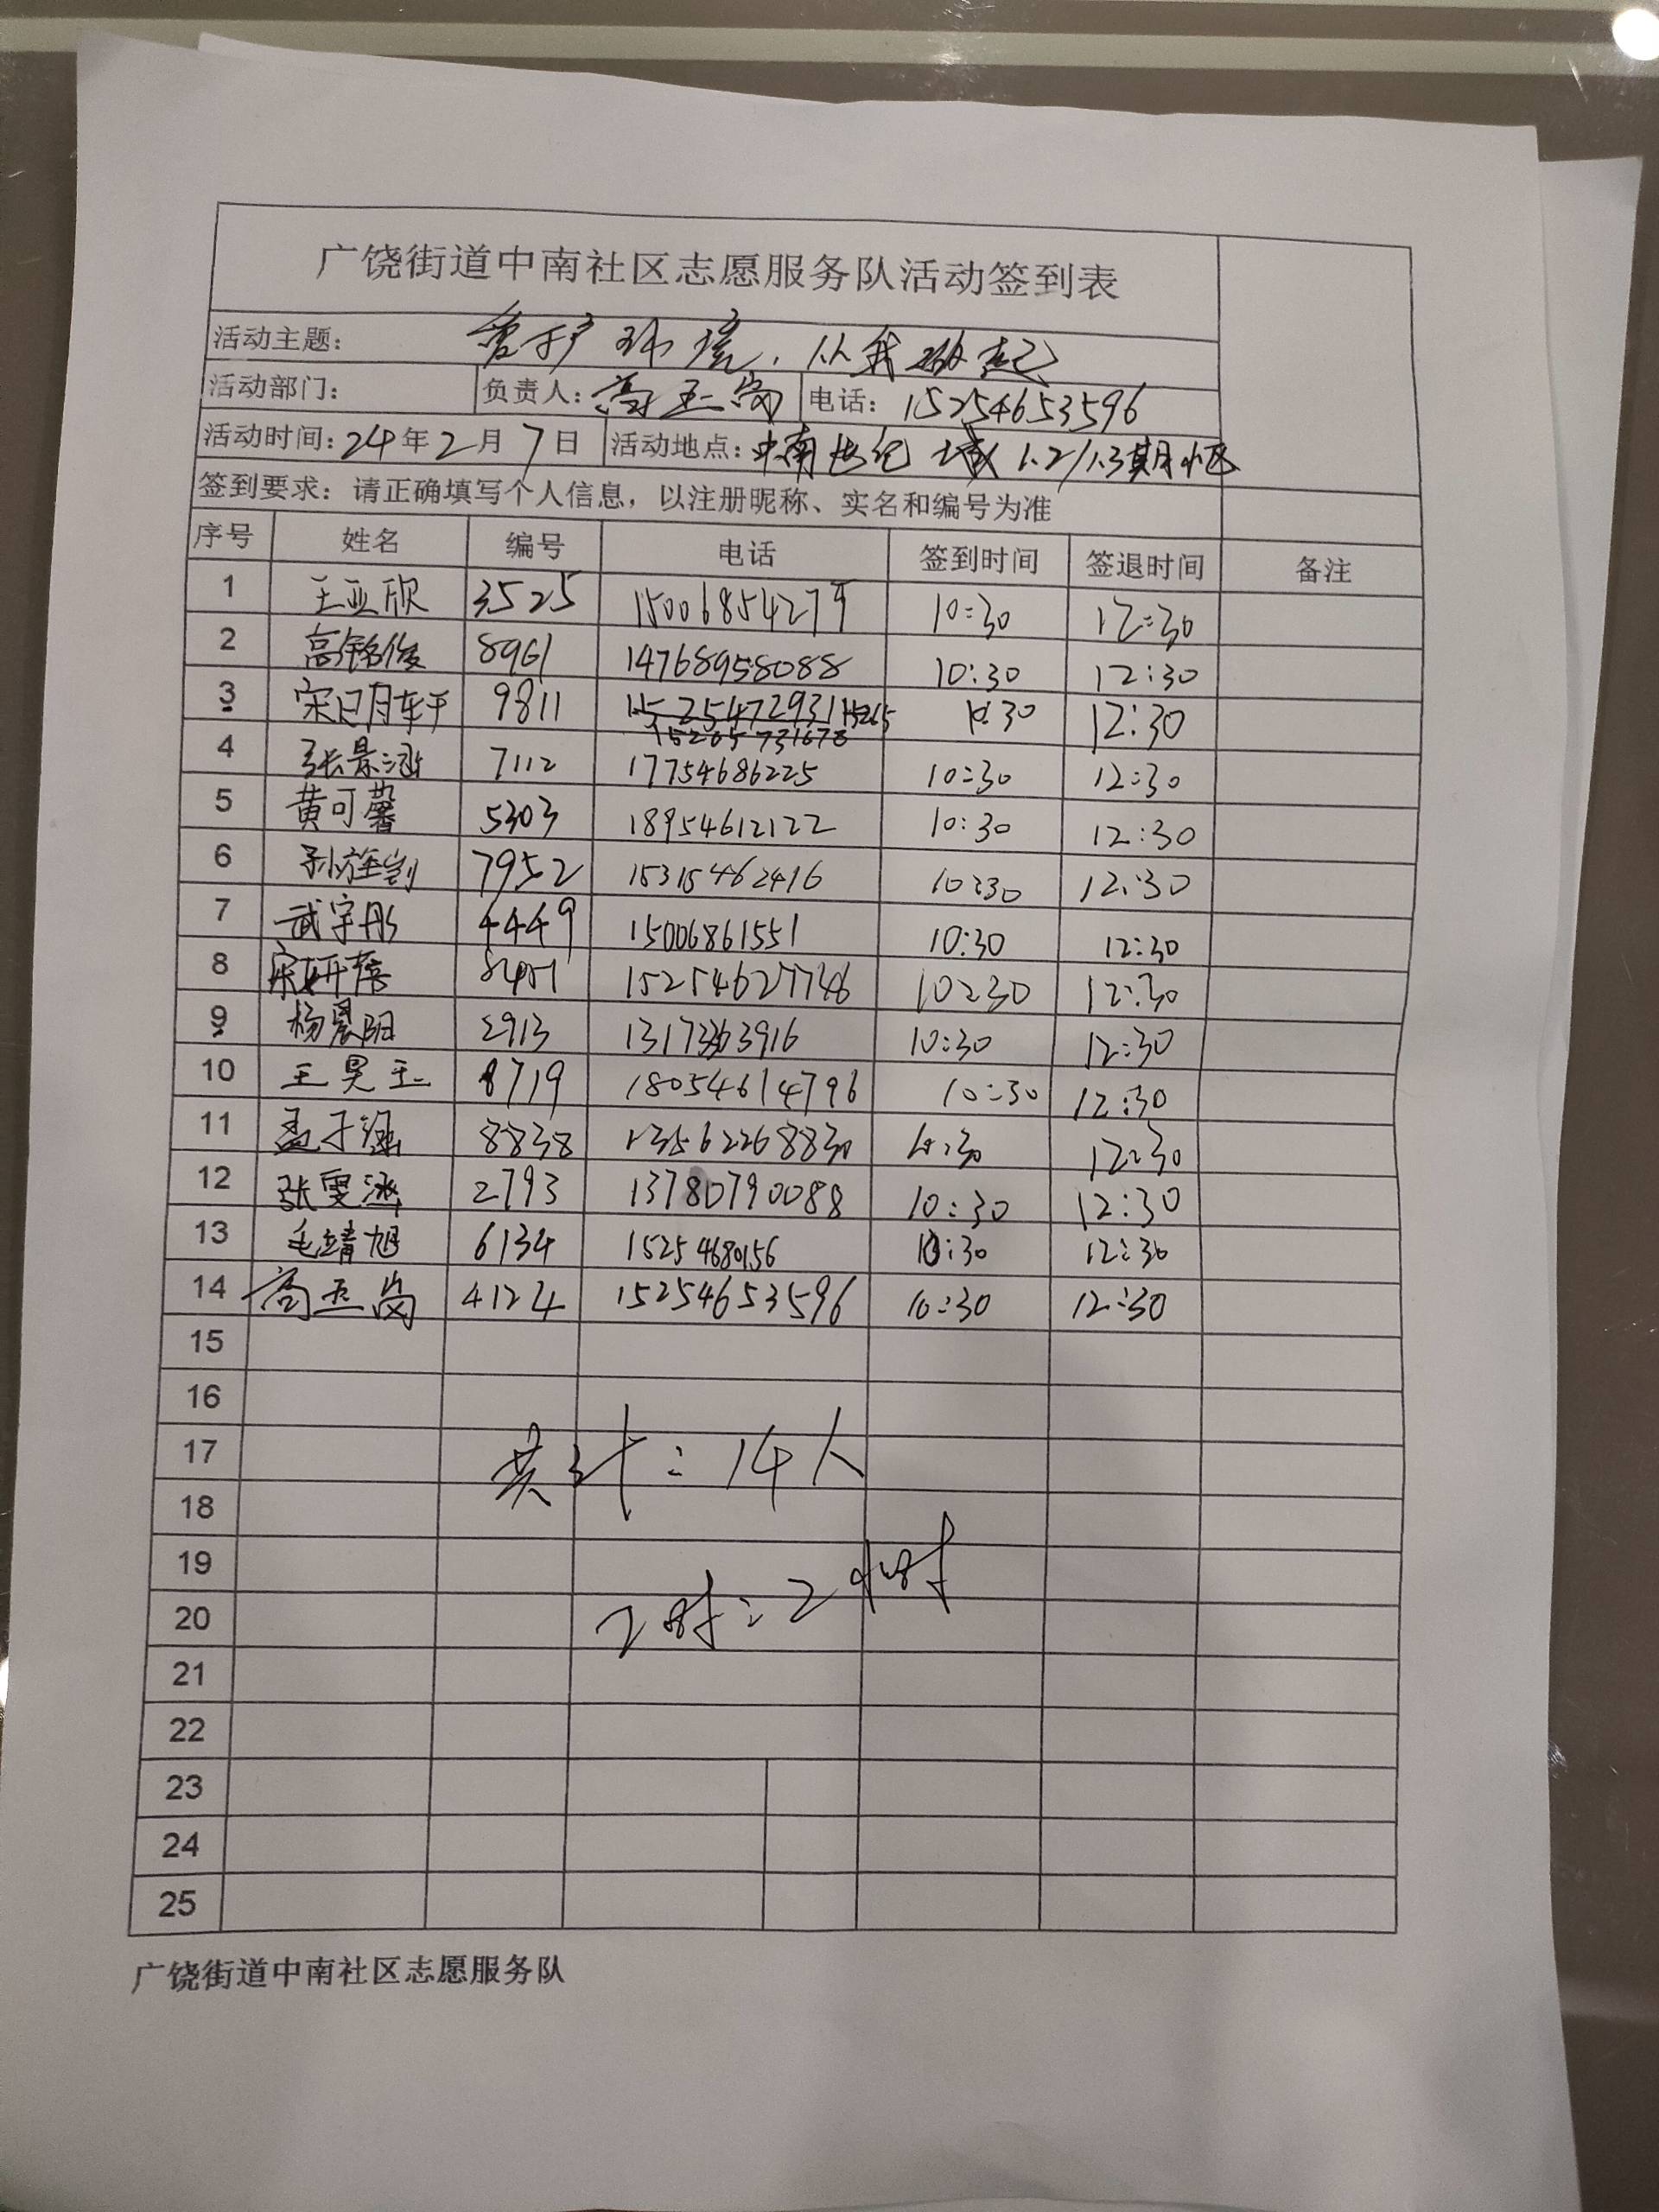 广饶街道中南社区志愿服务队活动签到表
活动主题: 爱护环境, 从我做起
活动部门: 负责人: 高玉岗 电话: 15254653596
活动时间: 24年2月7日 活动地点: 中南世纪城1.2/1.3期小区
签到要求: 请正确填写个人信息, 以注册昵称、实名和编号为准
序号 姓名 编号 电话 签到时间 签退时间 备注
1 王亚欣 3525 10:30 12:30
2 高铭俊 8961 14768958088 10:30 12:30
3 9811 10:30 12:30
4 张景涵 7112 17754686225 10:30 12:30
5 黄可馨 5303 18954612122 10:30 12:30
6 7952 15315462416 10:30 12:30
7 武宇彤 4449 15006861551 10:30 12:30
8 宋妍蓓 10:30 12:30
9 杨晨阳 2913 10:30 12:30
10 王昊玉 8719 18054614796 10:30 12:30
11 孟子涵 8838 13562268830 10:30 12:30
12 张雯涵 2793 13780790088 10:30 12:30
13 毛靖旭 6134 15254680156 10:30 12:30
14 高玉岗 4124 15254653596 10:30 12:30
15
16
17 共计: 14人
18
19
20 2小时
21
22
23
24
25
广饶街道中南社区志愿服务队